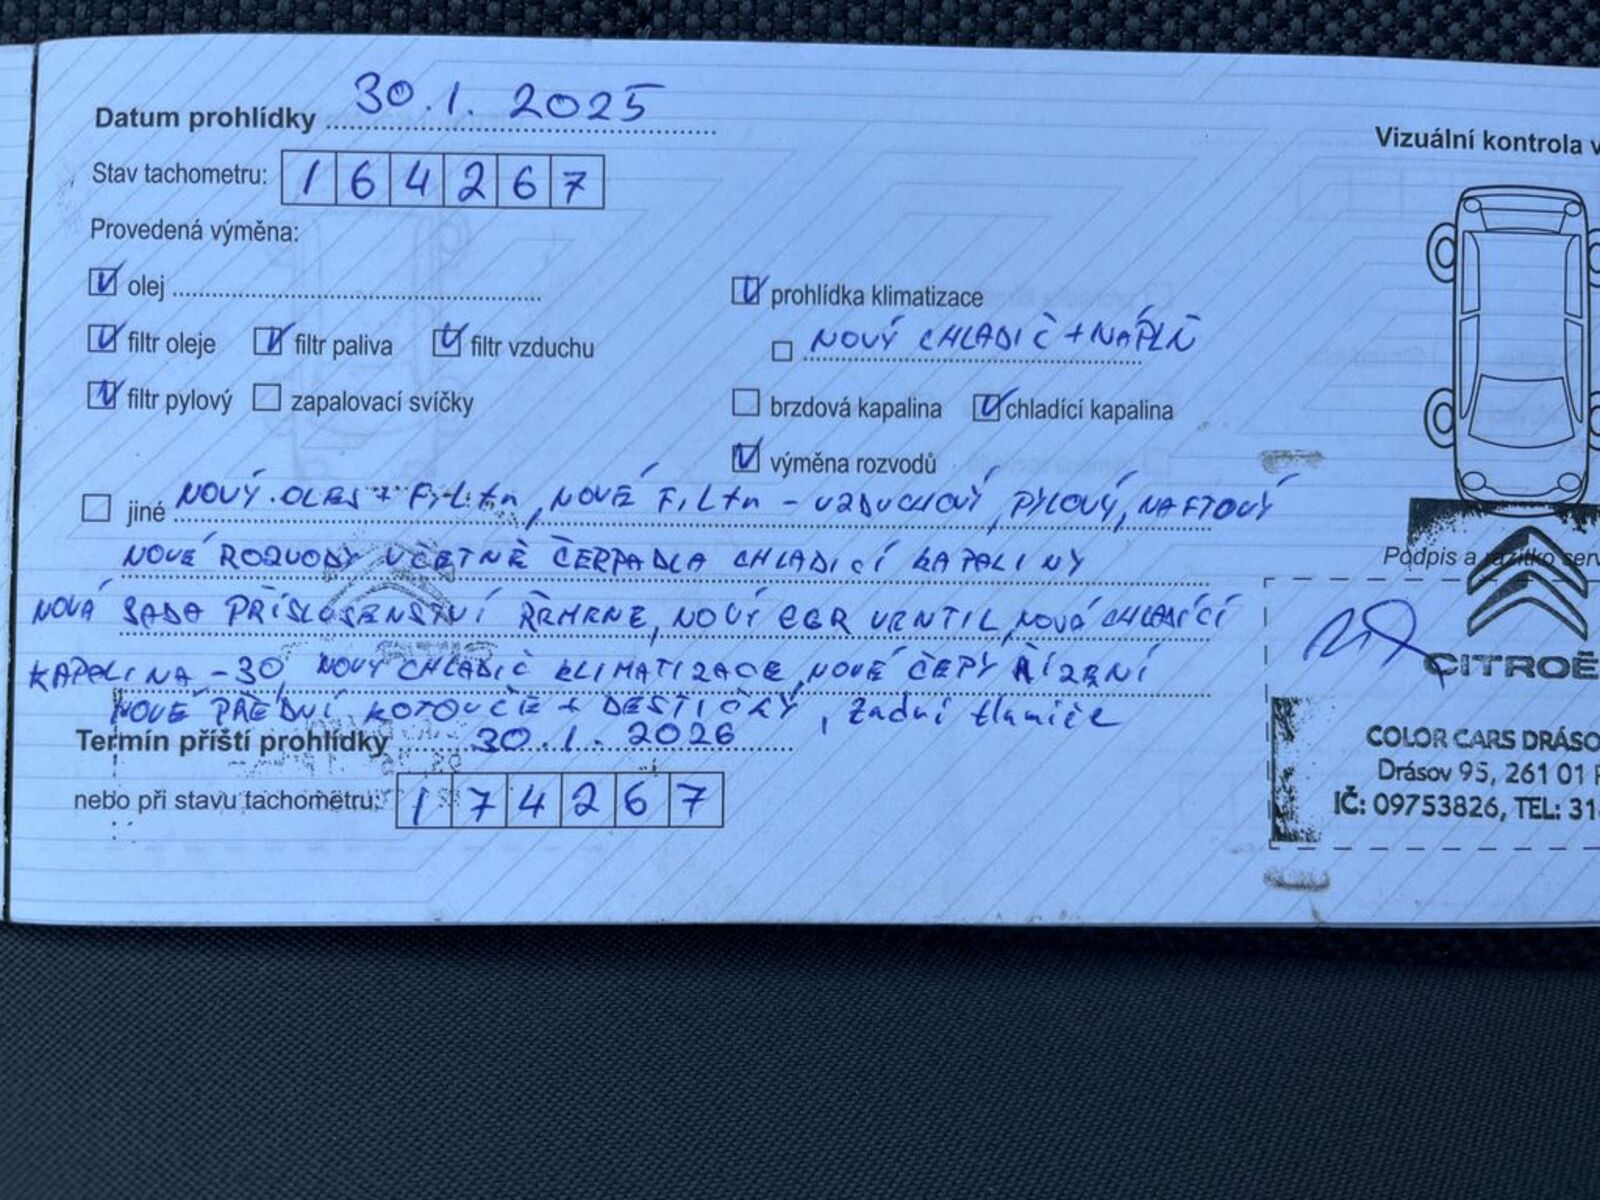 Datum prohlídky 30.1. 2025
Vizuální kontrola v
Stav tachometru: 164267
Provedená výměna:
olej
prohlídka klimatizace
filtr oleje filtr paliva filtr vzduchu
NOVÝ CHLADIČ + NÁPLŇ
filtr pylový zapalovací svíčky
brzdová kapalina chladící kapalina
výměna rozvodů
jiné NOVÝ OLEJ + FILtr, NOVÉ FILtr - VZDUCHOVÝ, PYLOVÝ, NAFTOVÝ
NOVÉ ROZVODY VČETNĚ ČERPADLA CHLADICÍ KAPALINY
Podpis a razítko serv
NOVÁ SADA PŘÍSLUŠENSTVÍ ŘEMENE, NOVÝ EGR VENTIL, NOVÁ CHLADÍCÍ
KAPALINA -30, NOVÝ CHLADIČ KLIMATIZACE, NOVÉ ČEPY ŘÍZENÍ
CITROË
NOVÉ PŘEDNÍ KOTOUČE + DESTIČKY, zadní tlumiče
Termín příští prohlídky 30.1. 2026
COLOR CARS DRÁSO
Drásov 95, 261 01 P
nebo při stavu tachometru: 174267
IČ: 09753826, TEL: 31